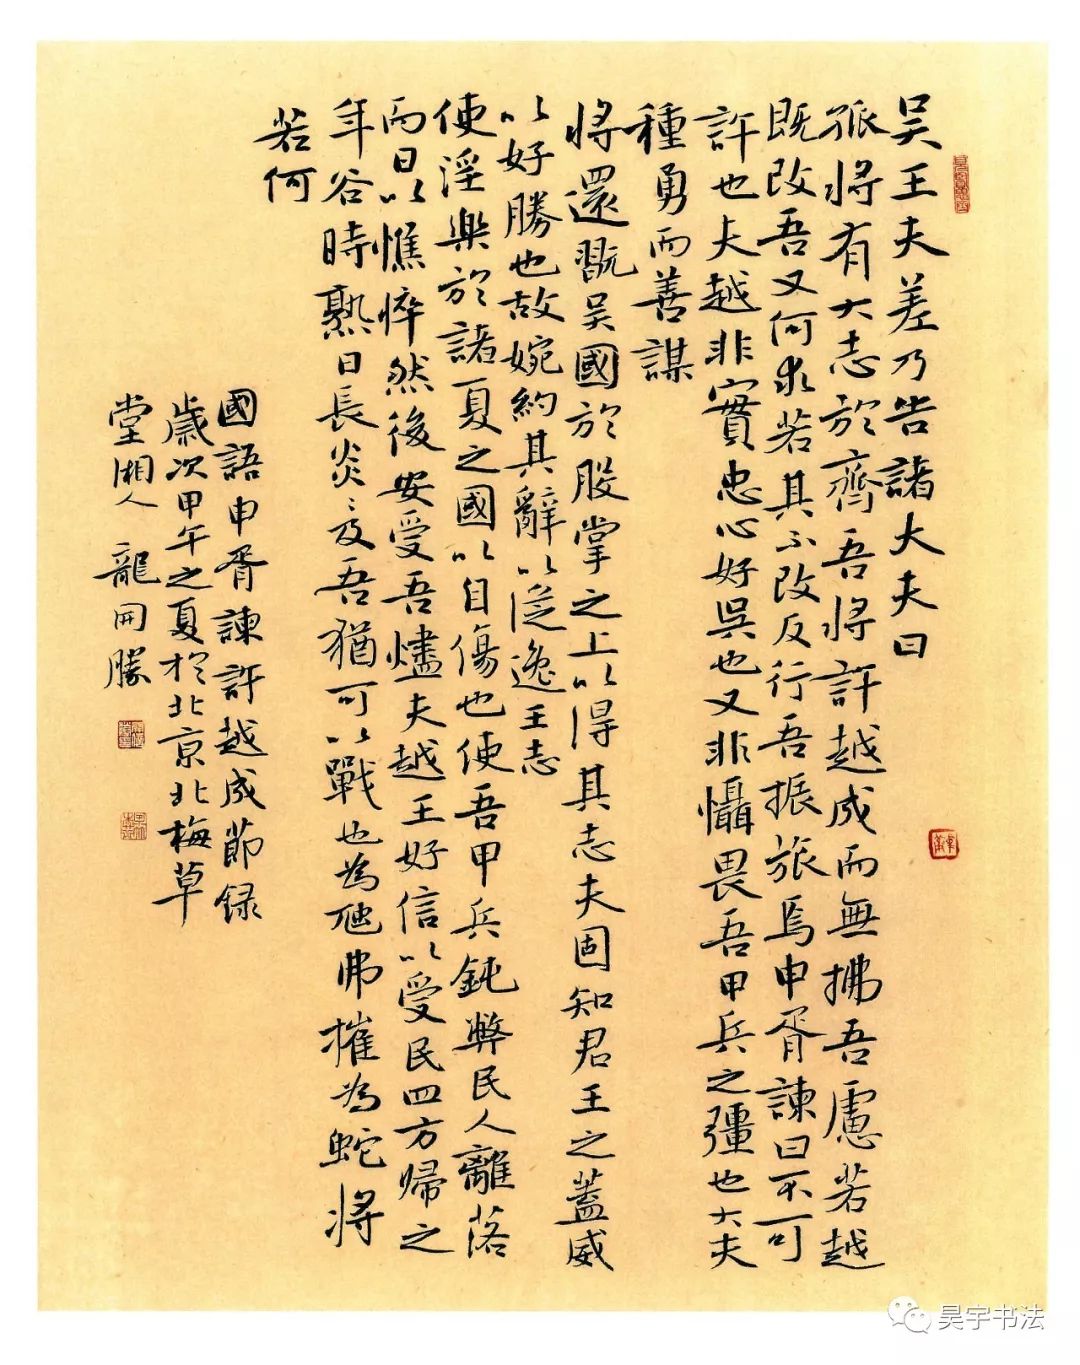 吴王夫差乃告諸大夫曰
孤将有大志於齊吾将許越成而無拂吾慮若越
既改吾又何求若其不改反行吾振旅焉申胥諫曰不可
許也夫越非實忠心好吳也又非懾畏吾甲兵之彊也大夫
種勇而善謀
将還翫吴國於股掌之上以得其志夫固知君王之蓋威
以好勝也故婉約其辭以從逸王志
使淫樂於諸夏之國以自傷也使吾甲兵鈍弊民人離落
而日以憔悴然後安受吾燼夫越王好信以受民四方歸之
年谷時熟日長炎〻及吾猶可以戰也為虺弗摧為蛇将
若何
國語申胥諫許越成節録
歲次甲午之夏於北京北梅草
堂湘人龍開勝
昊宇书法